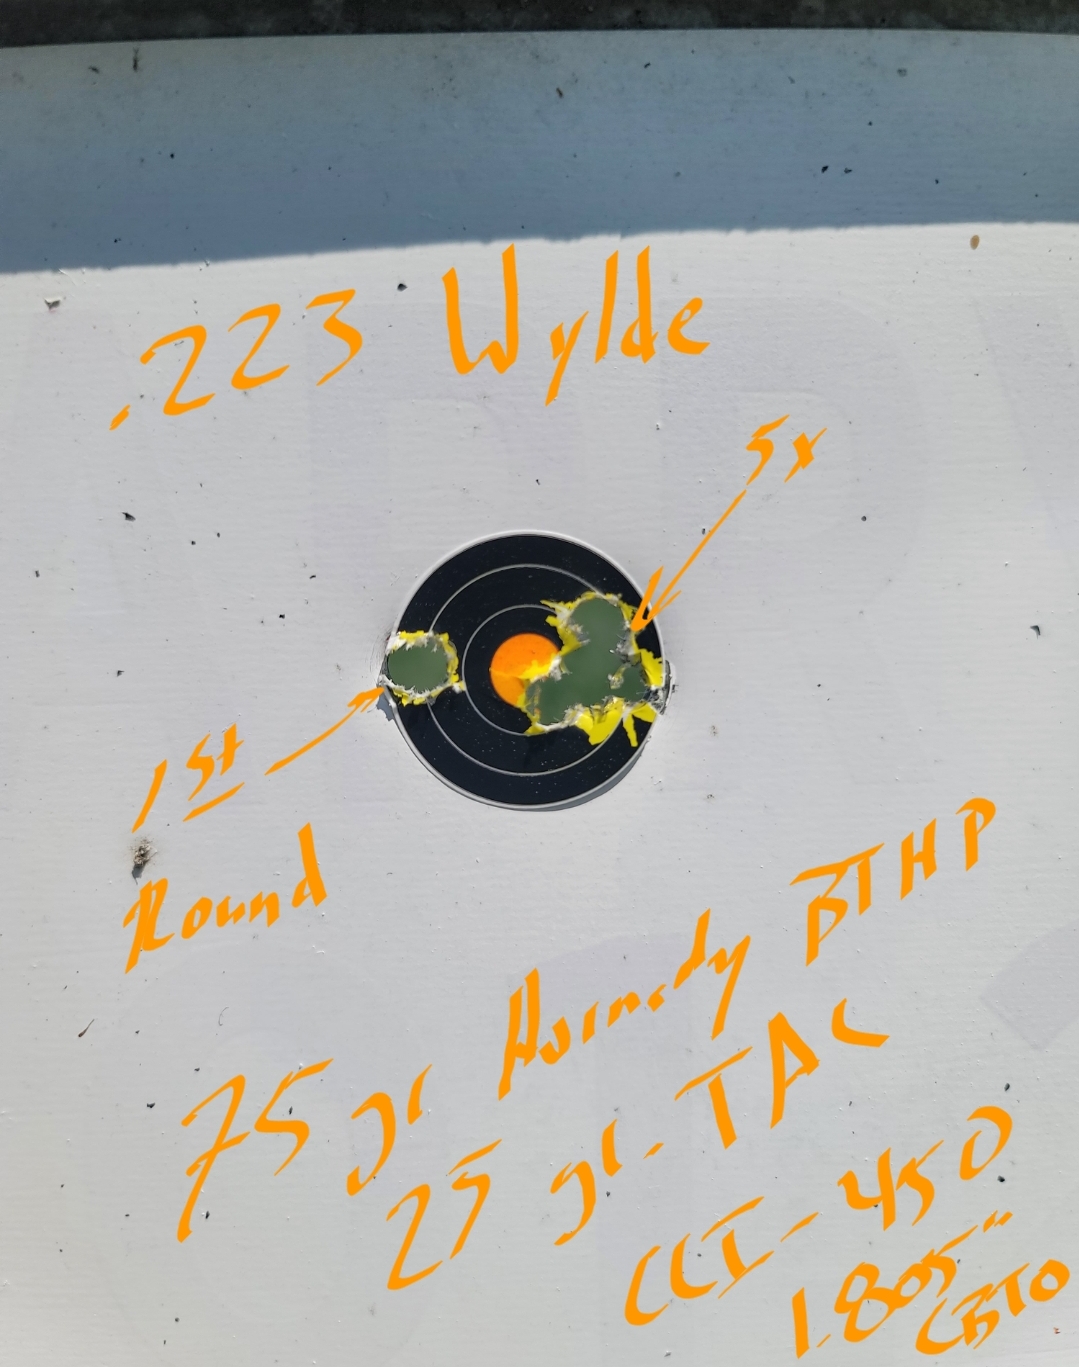 .223 Wylde
5x
1st
Round
75 gr Hornady BTHP
25 gr. TAC
CCI-450
1.805"
CBTO